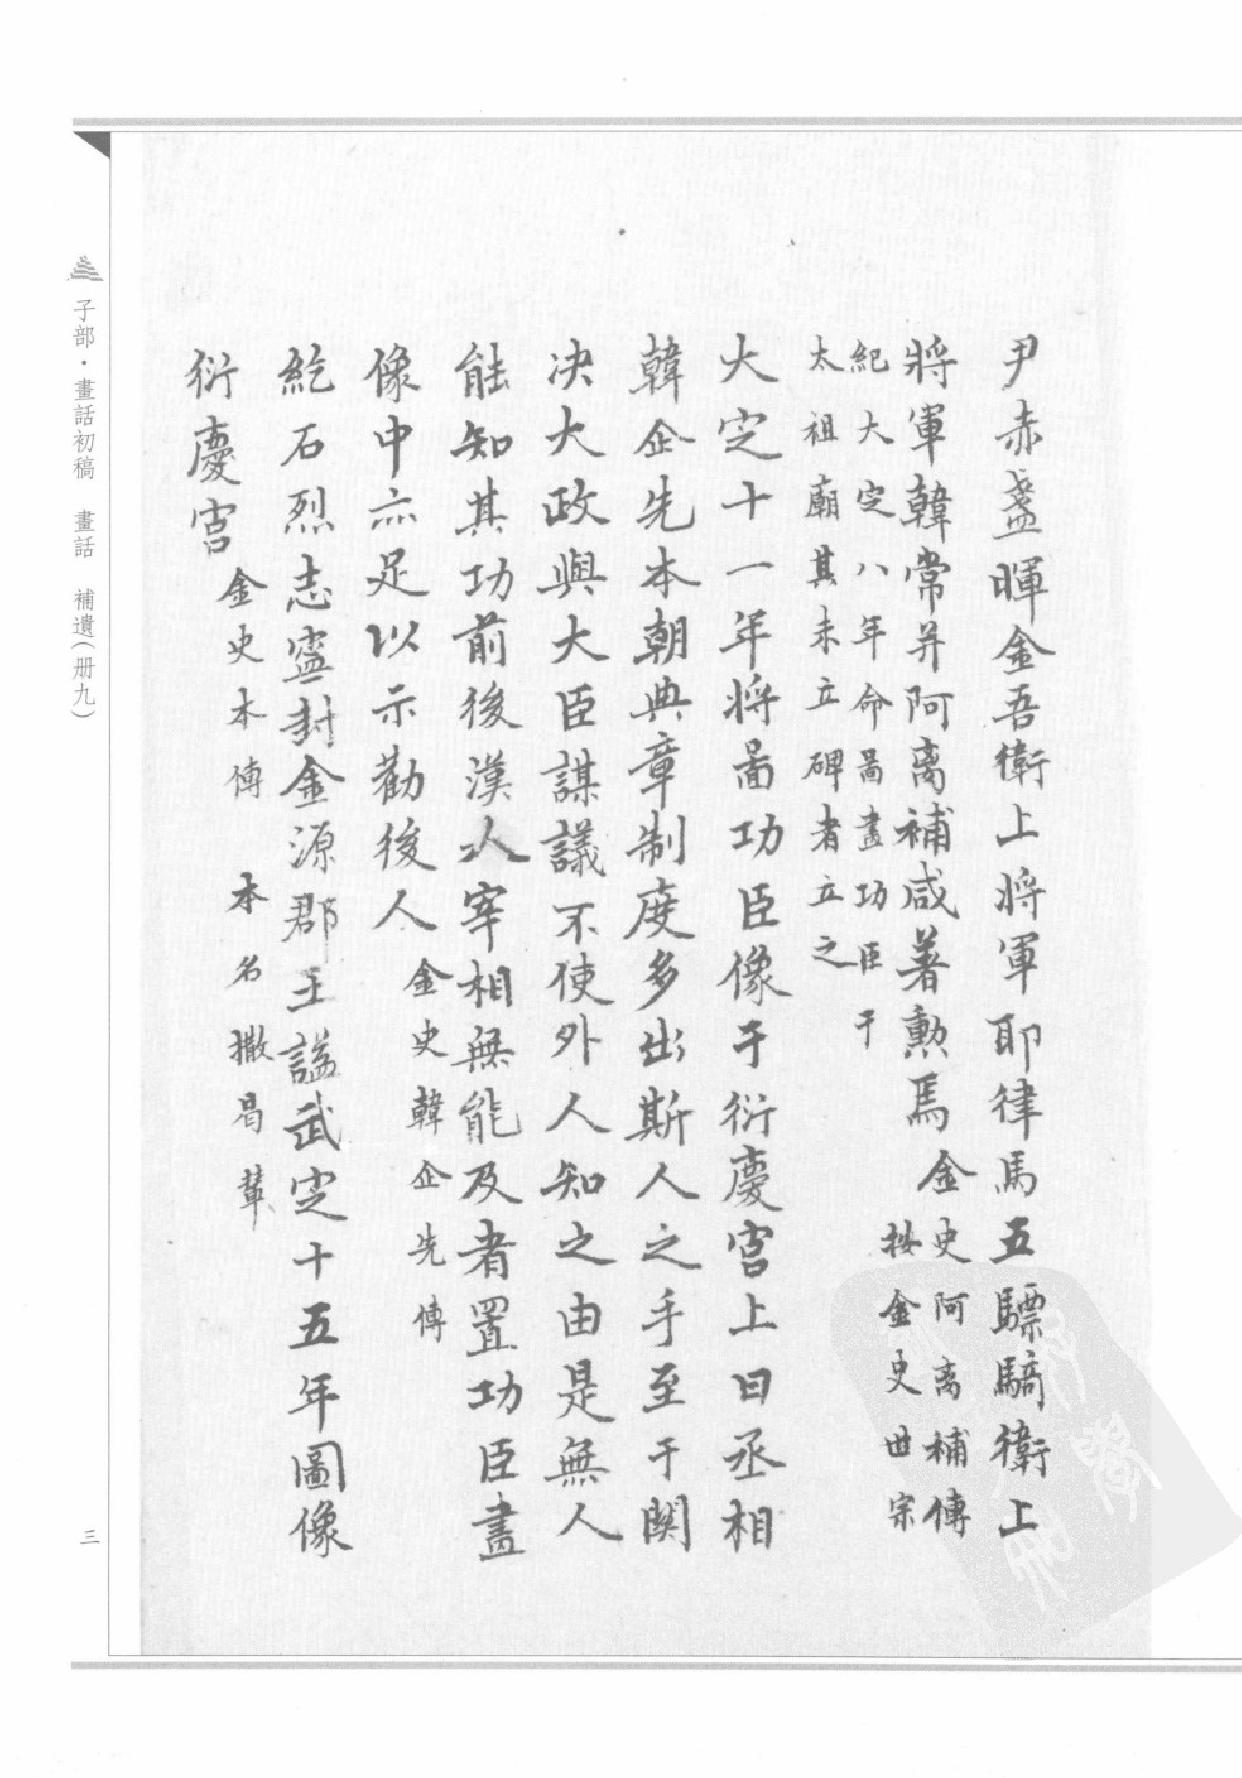 尹赤盞暉金吾衛上将軍耶律馬五驃騎衛上
将軍韓常并阿离補咸著勲焉金史阿离補傳
按金史世宗
紀大定八年命畵畫功臣于
太祖廟其未立碑者立之
大定十一年将啚功臣像于衍慶宫上曰丞相
韓企先本朝典章制度多出斯人之手至于関
决大政與大臣謀議不使外人知之由是無人
能知其功前後漢人宰相無能及者置功臣畫
像中亦足以示勸後人金史韓企先傳
紇石烈志寧封金源郡王諡武定十五年圖像
衍慶宫金史本傳 本名撒曷輦
子部·畫話初稿 畫話 補遺(册九)
三